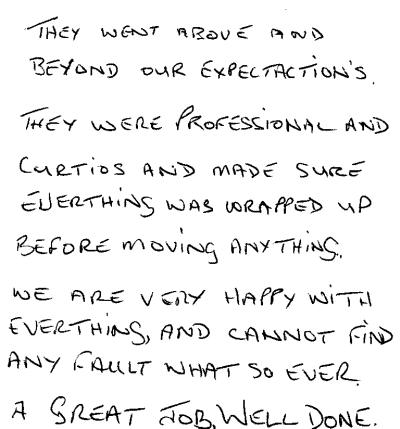 THEY WENT ABOVE AND
BEYOND OUR EXPECTACTION'S.
THEY WERE PROFESSIONAL AND
CURTIOS AND MADE SURE
EVERTHING WAS WRAPPED UP
BEFORE MOVING ANYTHING.
WE ARE VERY HAPPY WITH
EVERTHING, AND CANNOT FIND
ANY FAULT WHAT SO EVER.
A GREAT JOB, WELL DONE.